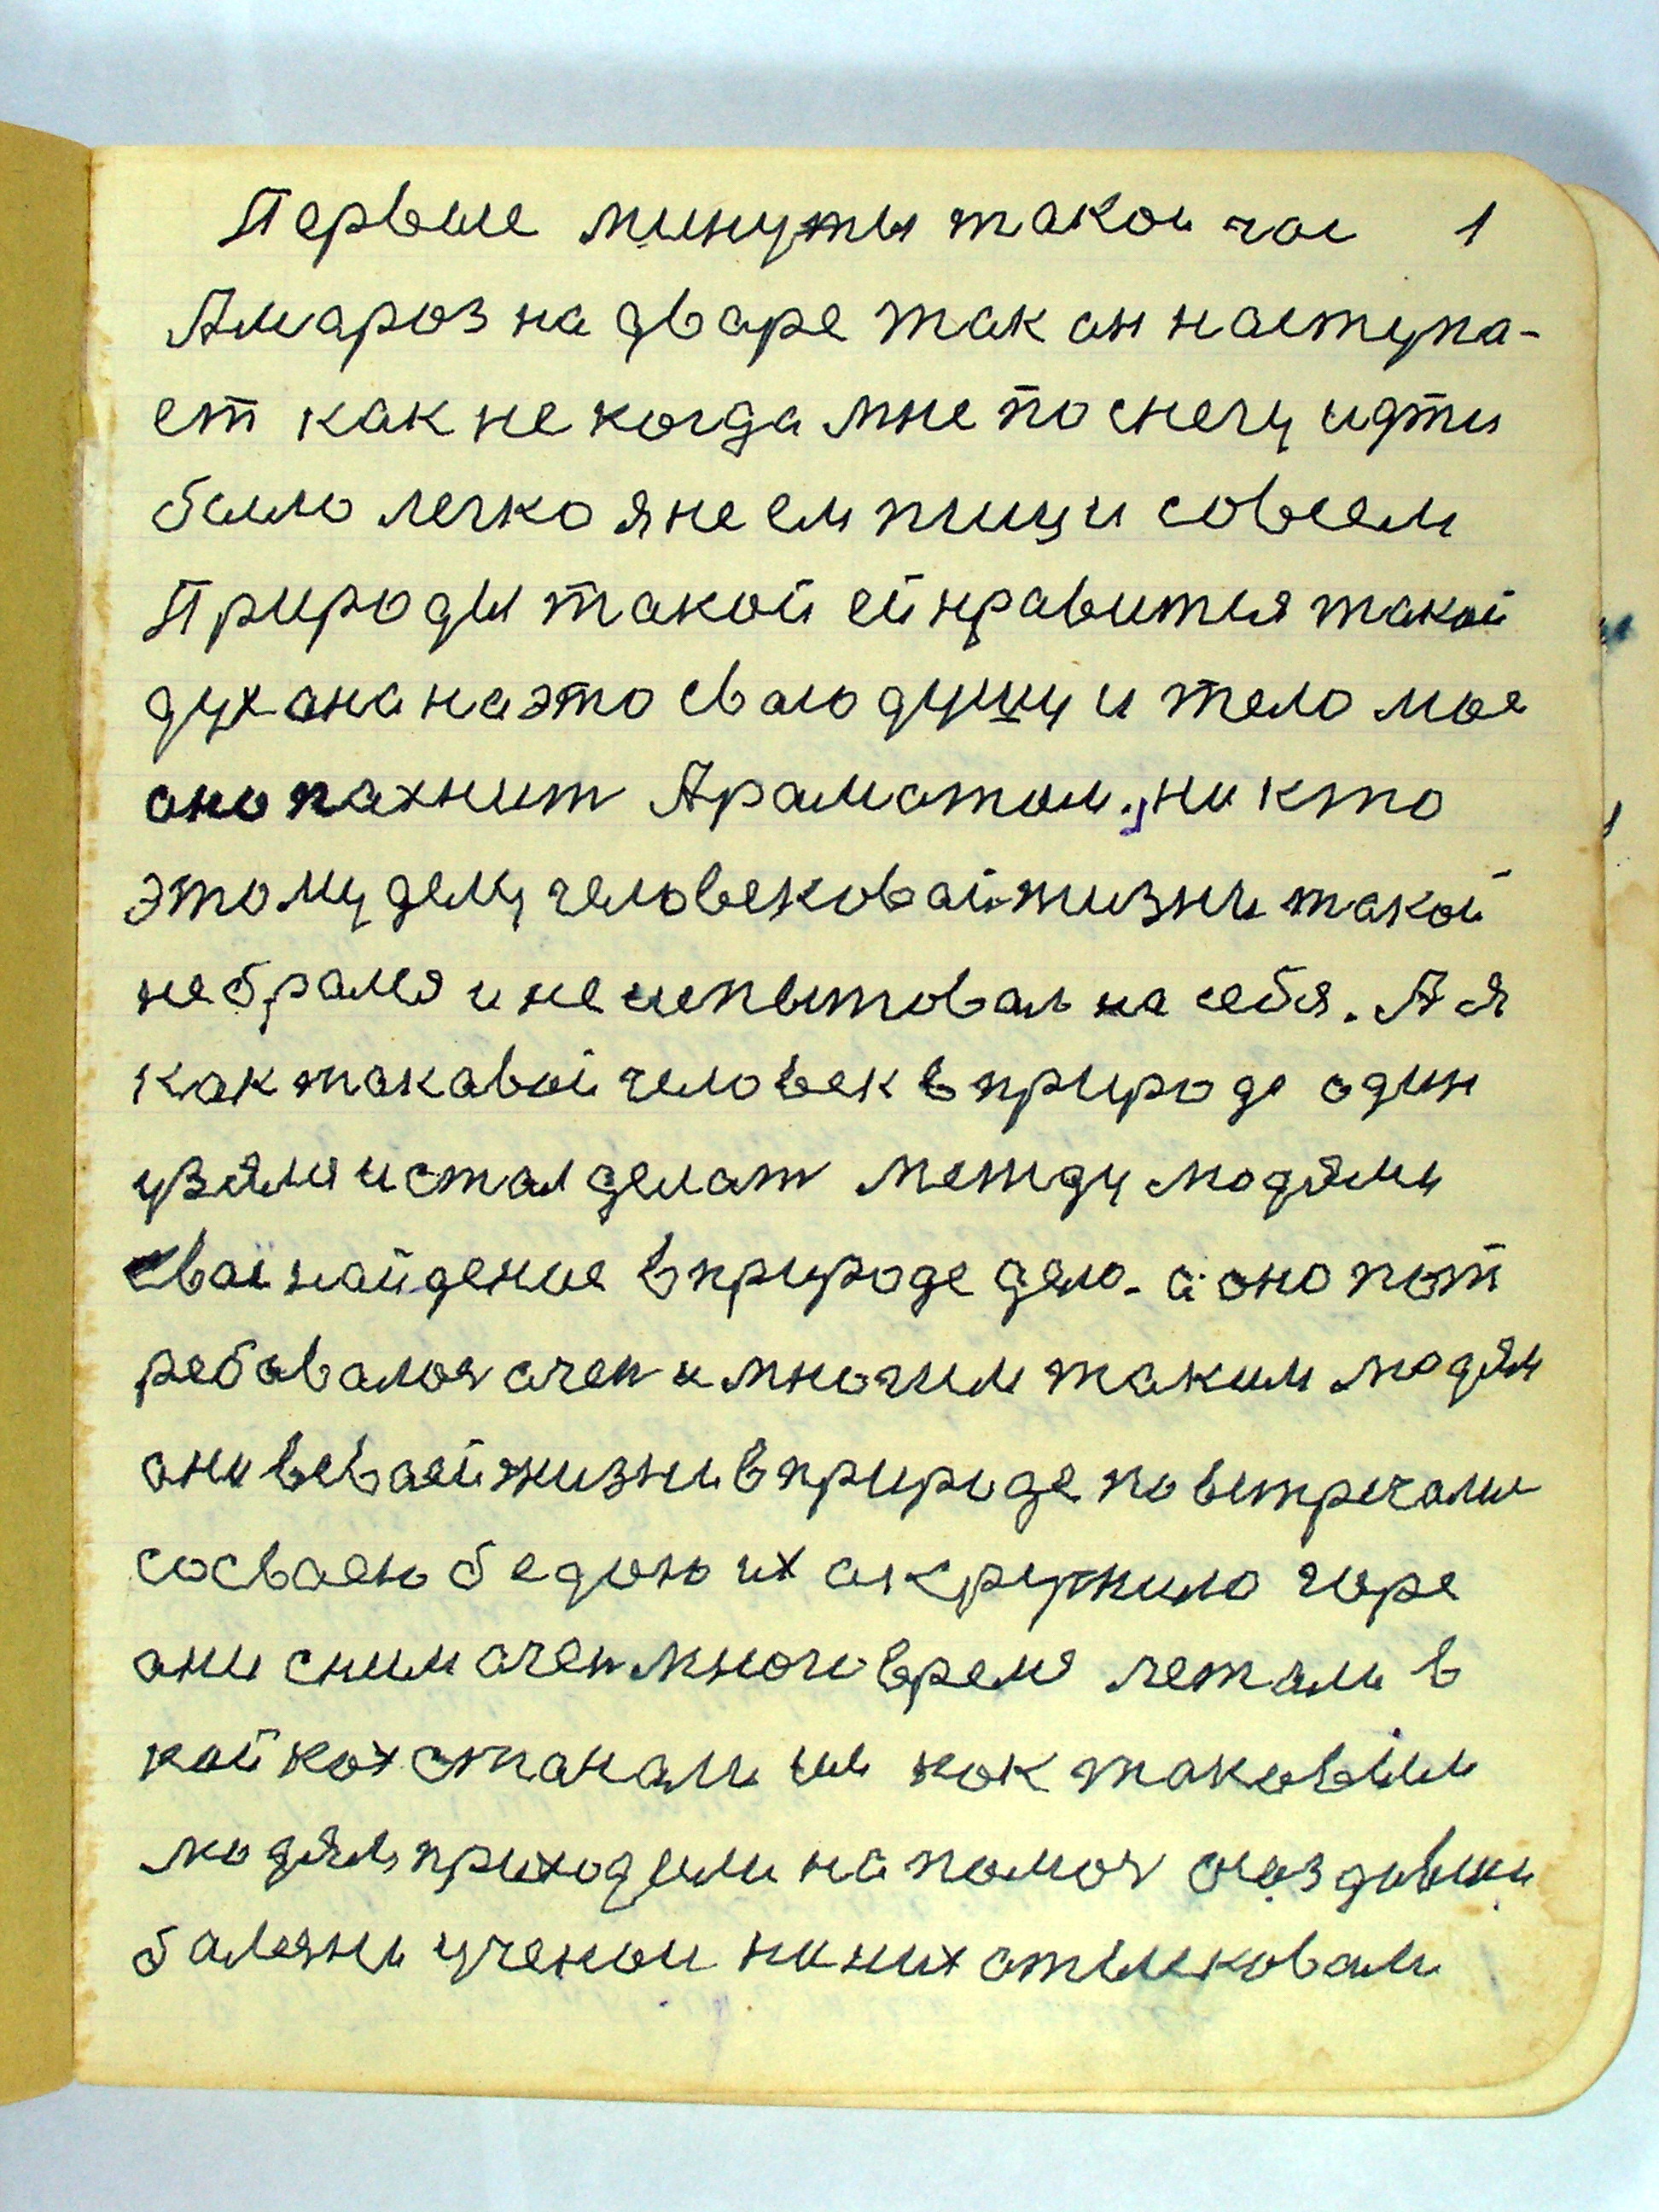 Первые минуты такой час 1
А мароз на дваре так он наступа-
ет как не когда мне по снегу идти
было легко я не ем пищи совсем
Природы такой ей нравится такой
дух она на это сваю душу и тело мое
оно пахнит Араматом. ни кто
этому делу человековай жизни такой
не брался и не испытовал на себя. А я
как такавой человек в природе один
узялся и стал делат между людями
сваи найдение в природе дело. а оно пот
ребавалося очен и многим таким людям
ани в свaей жизни в природе повстречали
со сваею бедою их акружило горе
ани с ним очен много время лежали в
койках станали им как таковым
людям приходили на помоч
балезни ученои на них